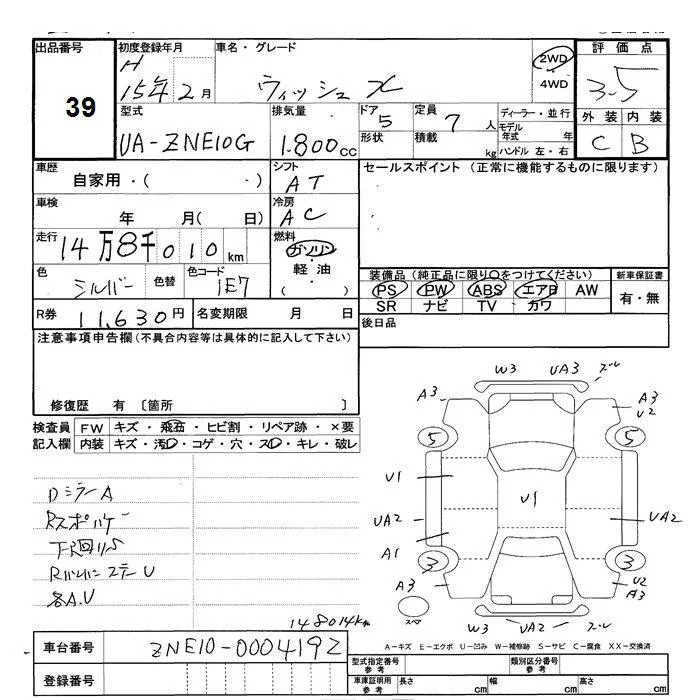 出品番号 初度登録年月 車名・グレード 2WD 評価点
39 H 15年2月 ウィッシュ X 4WD 3.5
型式 排気量 ドア 定員 ディーラー・並行 外装 内装
UA-ZNE10G 1.800cc 5 7人 モデル年式 年 C B
形状 積載 kg ハンドル 左・右
車歴 シフト セールスポイント (正常に機能するものに限ります)
自家用・( ・) AT
車検 冷房
年 月( 日) AC
走行 燃料
14万8千010km ガソリン
軽油
(・ )
色 色替 色コード
シルバー 1E7
装備品(純正品に限り○をつけてください) 新車保証書
PS PW ABS エアB AW 有・無
SR ナビ TV カワ
R券 11,630円 名変期限 月 日
後日品
注意事項申告欄(不具合内容等は具体的に記入して下さい)
修復歴 有 〔箇所 〕
検査員 FW キズ・飛石・ヒビ割・リペア跡・×要
記入欄 内装 キズ・汚・コゲ・穴・ス・キレ・破レ
DミラーA
RバンパーステーU
各A.U
148014km
W3 UA3 ズレ
A3 A3
U2
5 5
U1 U1
UA2 UA2
A1
3 3
A3 U2
A3
W3 UA2 ズレ
A-キズ E-エクボ U-凹み W-補修跡 S-サビ C-腐食 XX-交換済
車台番号 ZNE10-0004192
登録番号
型式指定番号 参考 類別区分番号 参考
車庫証明用 参考 長さ cm 幅 cm 高さ cm